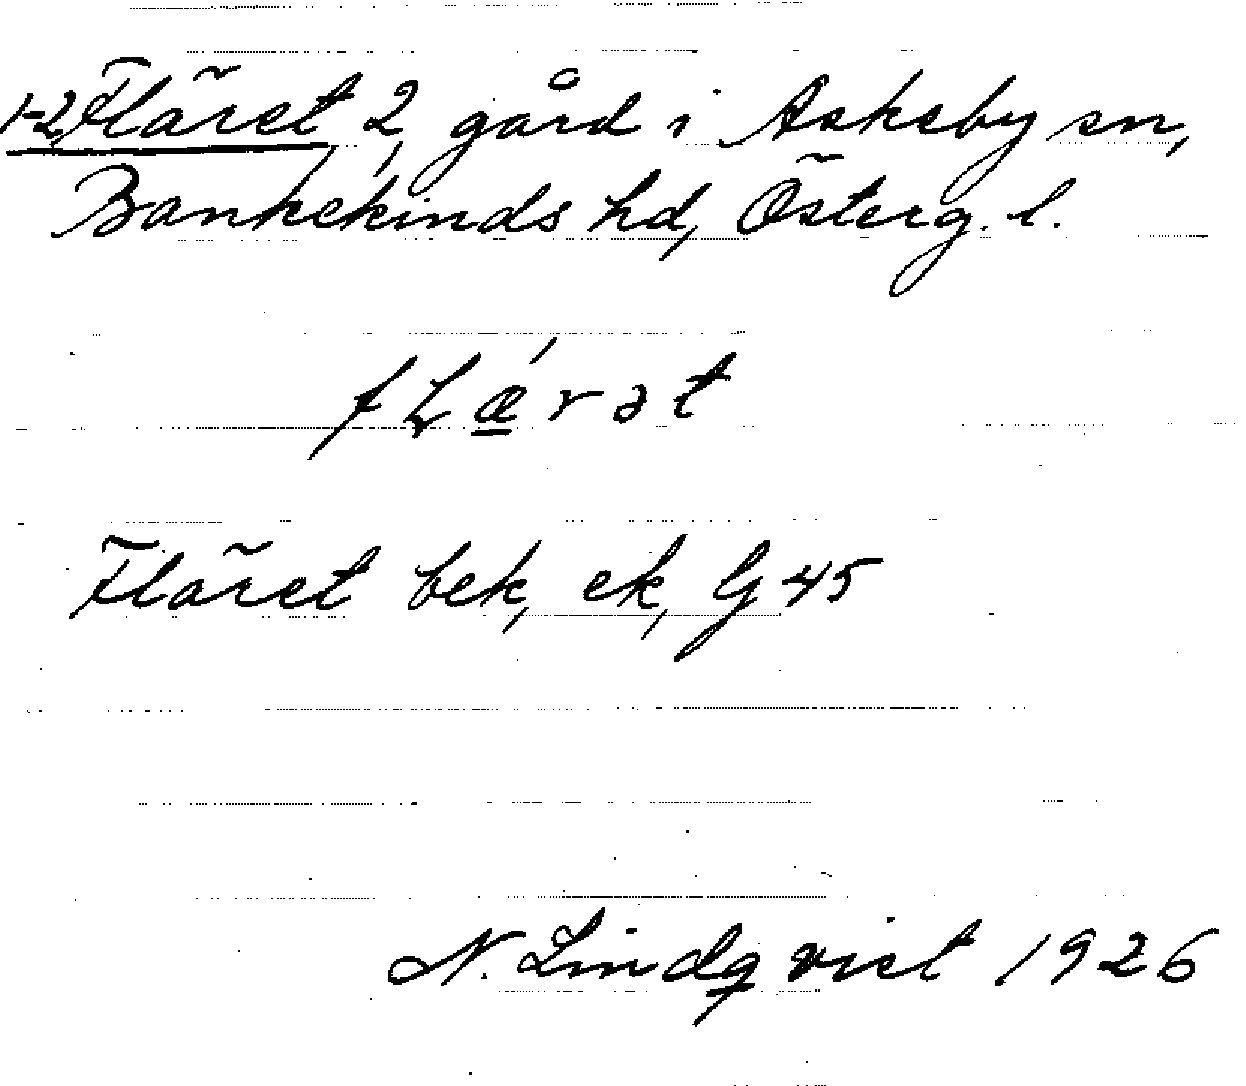 1-2, Fläret 2, gård i Askeby sn,
Bankekinds hd, Österg. l.
fLǽrət
Fläret bek, ek, G 45
N. Lindqvist 1926